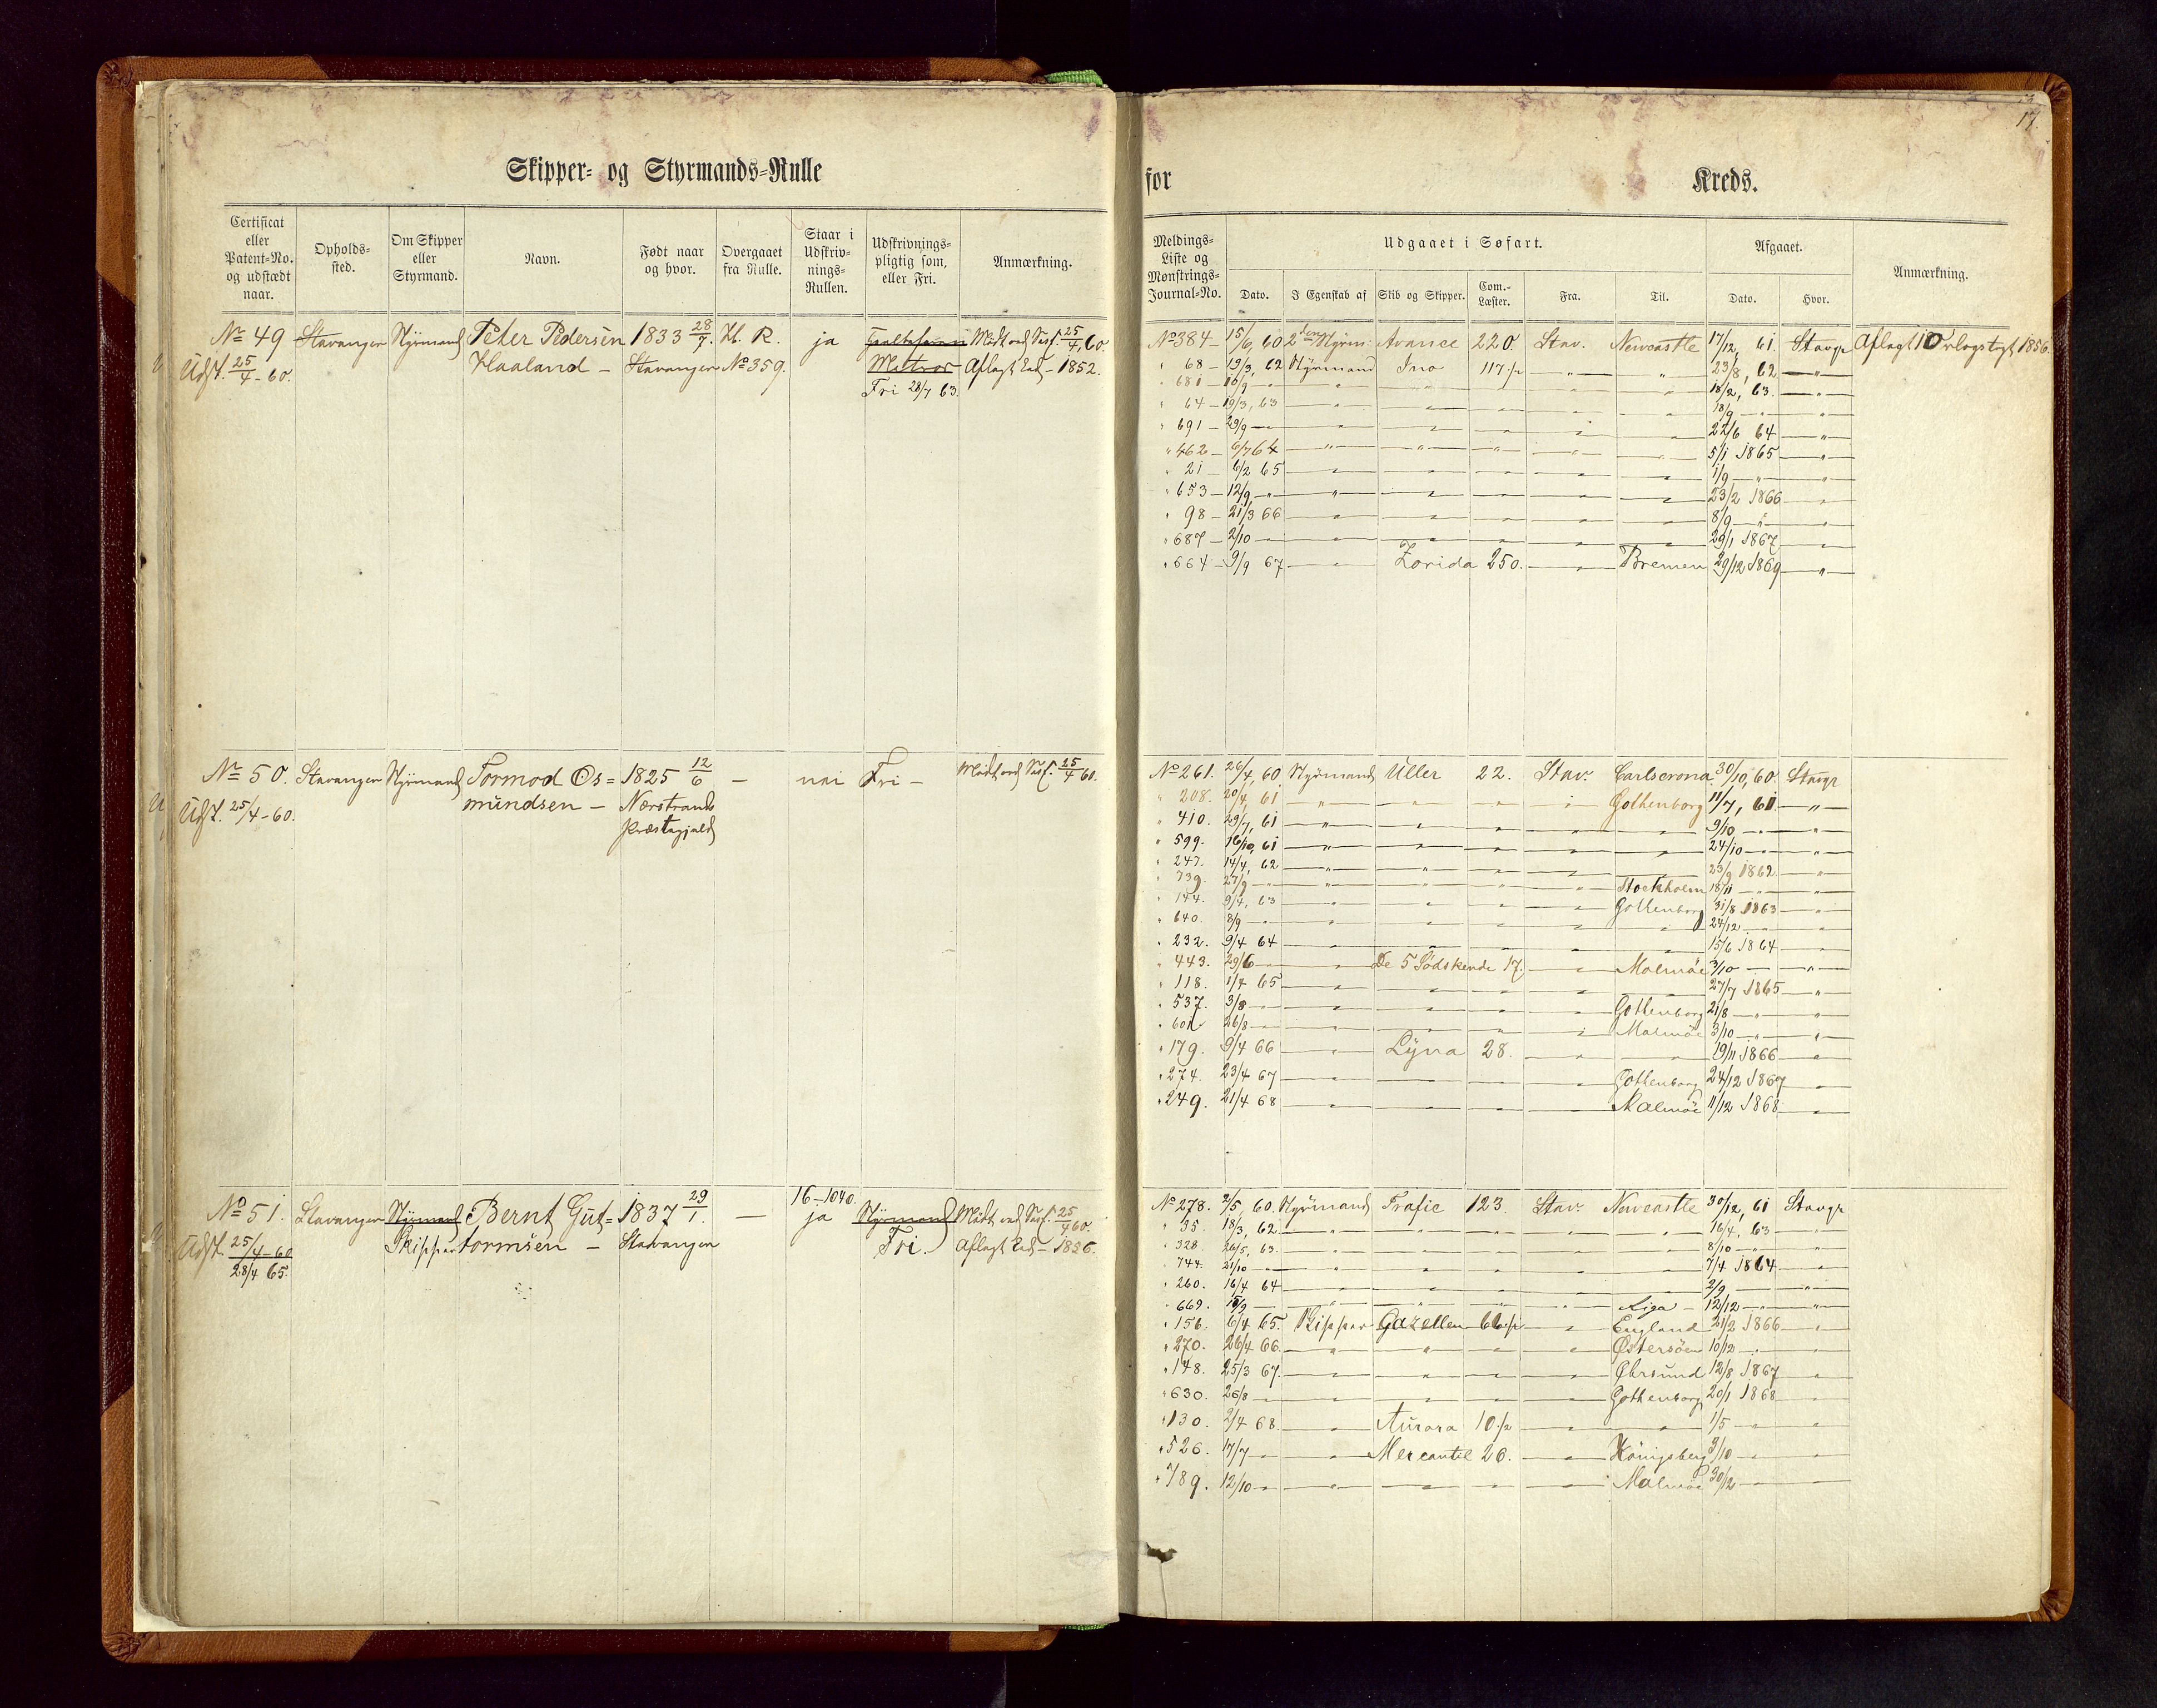 Skipper- og Styrmands-Rulle
for Kreds.
17.
Certificat eller Patent-No. og udstædt naar.
Opholds-sted.
Om Skipper eller Styrmand.
Navn.
Født naar og hvor.
Overgaaet fra Rulle.
Staar i Udskriv-nings-Rullen.
Udskrivnings-pligtig som, eller Fri.
Anmærkning.
Meldings-Liste og Mønstrings-Journal-No.
Udgaaet i Søfart.
Dato. I Egenskab af Skib og Skipper. Com.-Læster. Fra. Til.
Afgaaet.
Dato. Hvor.
Anmærkning.
No 49 Stavanger Styrmand Peter Pedersen 1833 28/7. H. R. ja Mödt ved Sess. 25/4, 60.
Udst. 25/4 - 60. Haaland - Stavanger No 359. Aflagt Ed - 1852.
Fri 28/7 63.
No 384 - 15/6, 60 2den Styrm: Avance 220 Stav. Newcastle 17/12, 61 Stavgr Aflagt 1 Orlogstogt 1856.
" 68 - 13/3, 62 Styrmand Ino 117 1/2 - " - " 23/8, 62 - " -
" 681 - 16/9 - " - 18/2, 63. - " -
" 64 - 19/3, 63 - " - 18/9 - " -
" 691 - 29/9 - " - 22/6 64 - " -
" 462 - 6/7 64 - " - 5/1 1865 - " -
" 21 - 6/2 65 - " - 1/9 - " -
" 653 - 12/9 - " - 23/2 1866 - " -
" 98 - 21/3 66 - " - 8/9 - " -
" 687 - 2/10 - " - 29/1 1867 - " -
" 664 - 9/9 67 - " - Zorida 250. - " - Bremen 29/12 1869 - " -
No 50. Stavanger Styrmand Tormod Os= 1825 12/6 - nei Fri - Mödt ved Sess. 25/4 60.
Udst. 25/4 - 60. mundsen - Nerstrands
Præstegjeld
No 261. 26/4, 60 Styrmand Uller 22. Stav. Carlscrona 30/10, 60. Stavgr
" 208. 20/4, 61 - " - Gothenborg 11/7, 61 - " -
" 410. 29/7, 61 - " - 9/10 - " -
" 599. 16/10, 61 - " - 24/10 - " -
" 247. 14/4, 62 - " - 23/9 1862 - " -
" 739. 27/9 - " - Stockholm 18/11 - " -
" 144. 9/4, 63 - " - Gothenborg 31/8 1863 - " -
" 640. 8/9 - " - 24/12 - " -
" 232. 9/4 64 - " - 15/6 1864 - " -
" 443. 29/6 - " - De 5 Södskende 17. - " - Malmöe 3/10 - " -
" 118. 1/4 65 - " - 27/7 1865 - " -
" 537. 3/8 - " - Gothenborg 21/8 - " -
" 601 26/8 - " - Malmöe 3/10 - " -
" 179. 9/4 66 - " - Lyna 28. - " - 19/11 1866 - " -
" 274. 23/4 67 - " - Gothenborg 24/12 1867 - " -
" 249. 21/4 68 - " - Malmöe 11/12 1868 - " -
16 - 1040.
No 51. Stavanger Styrmand Bernt Gut= 1837 29/1. - ja Styrmand Mödt ved Sess. 25/4 60.
Udst. 25/4 - 60 Skipper tormsen - Stavanger Fri. Aflagt Ed - 1856.
28/4 65.
No 278. 2/5, 60. Styrmand Trafic 123. Stav. Newcastle 30/12, 61 Stavgr
" 35. 18/3, 62. - " - 16/4, 63 - " -
" 328. 26/5, 63. - " - 8/10 - " -
" 744. 21/10 - " - 7/4 1864 - " -
" 260. 16/4 64 - " - 2/9 - " -
" 669. 15/9 - " - Riga - 12/12 - " -
" 156. 6/4 65. Skipper Gazellen 66 1/2 - " - England 21/2 1866 - " -
" 270. 26/4 66. - " - Østersöen 10/12 - " -
" 148. 25/3 67. - " - Øhrsund 12/8 1867 - " -
" 630. 26/8 - " - Gothenborg 20/1 1868 - " -
" 130. 2/4 68. - " - Aurora 10 1/2 - " - 1/5 - " -
" 526. 17/7 - " - Mercantil 26. - " - Königsberg 3/10 - " -
" 789. 12/10 - " - Malmöe 30/12 - " -